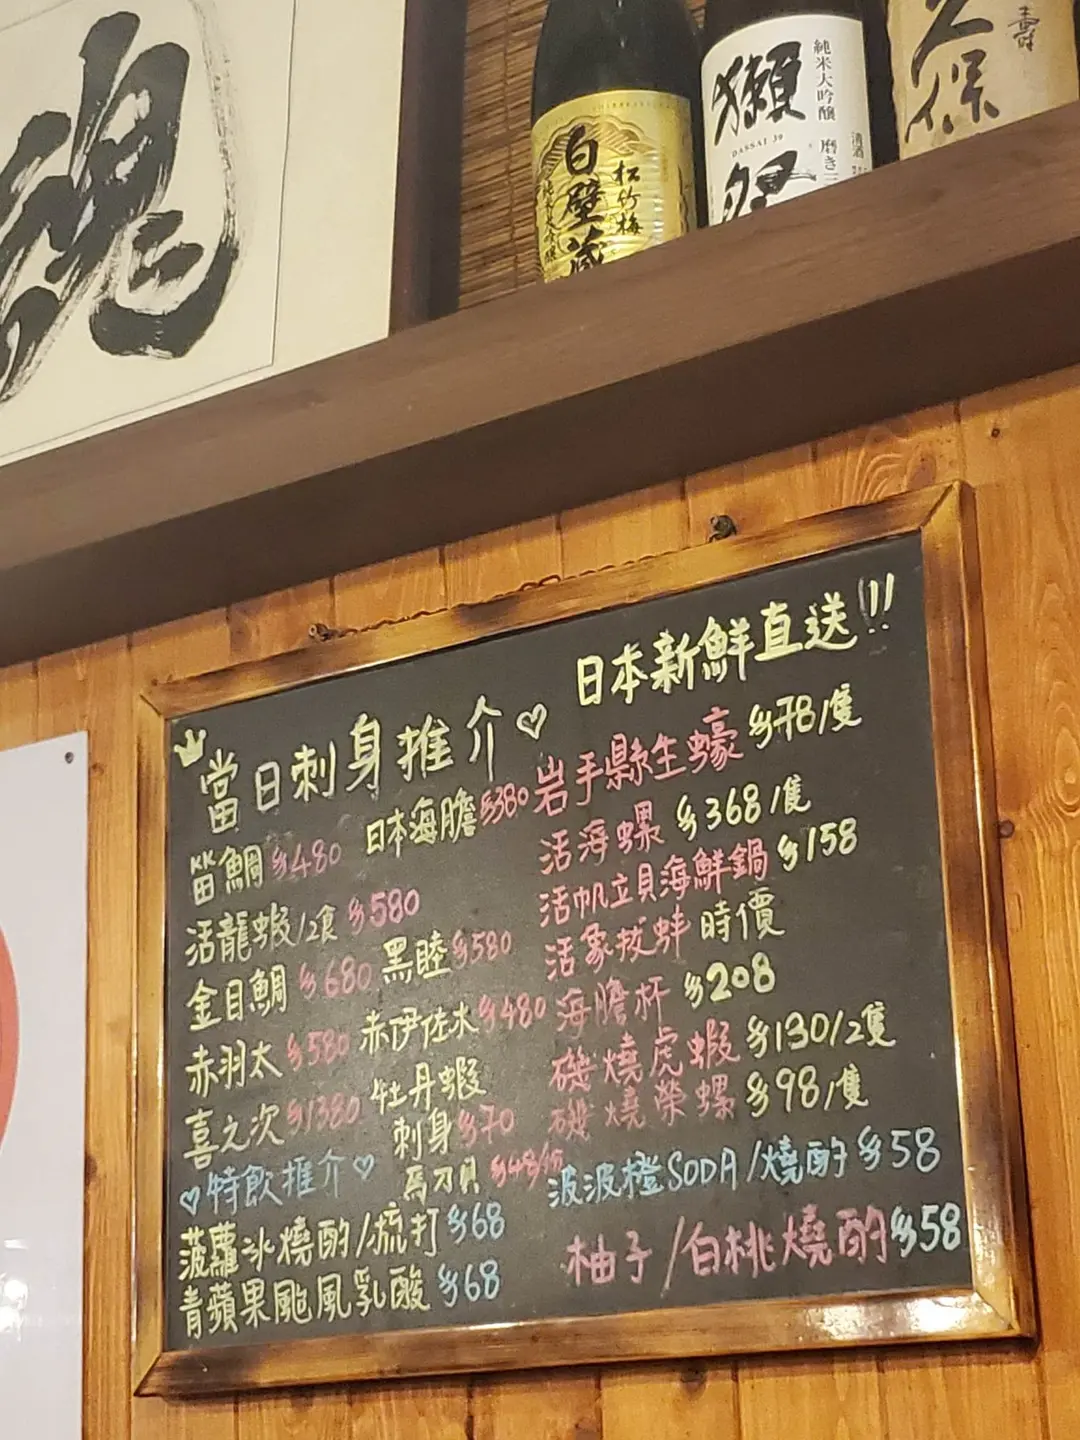 魂
松竹梅
白壁蔵
純米大吟醸
獺祭
DASSAI 39
純米大吟醸 磨き三
清酒
久保
壽
當日刺身推介♡
日本新鮮直送!!
笛鯛 $480
日本海膽 $380
活龍蝦/2食 $580
金目鯛 $680
黑睦 $580
赤羽太 $580
赤伊佐木 $480
喜之次 $1380
牡丹蝦
刺身 $70
馬刀貝
岩手縣生蠔 $78/隻
活海螺 $368/隻
活帆立貝海鮮鍋 $158
活象拔蚌 時價
海膽杯 $208
磯燒虎蝦 $130/2隻
磯燒榮螺 $98/隻
♡特飲推介♡
菠蘿冰燒酌/梳打 $68
青蘋果颱風乳酸 $68
波波橙SODA/燒酌 $58
柚子/白桃燒酌 $58